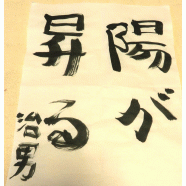 陽が
昇る
治男